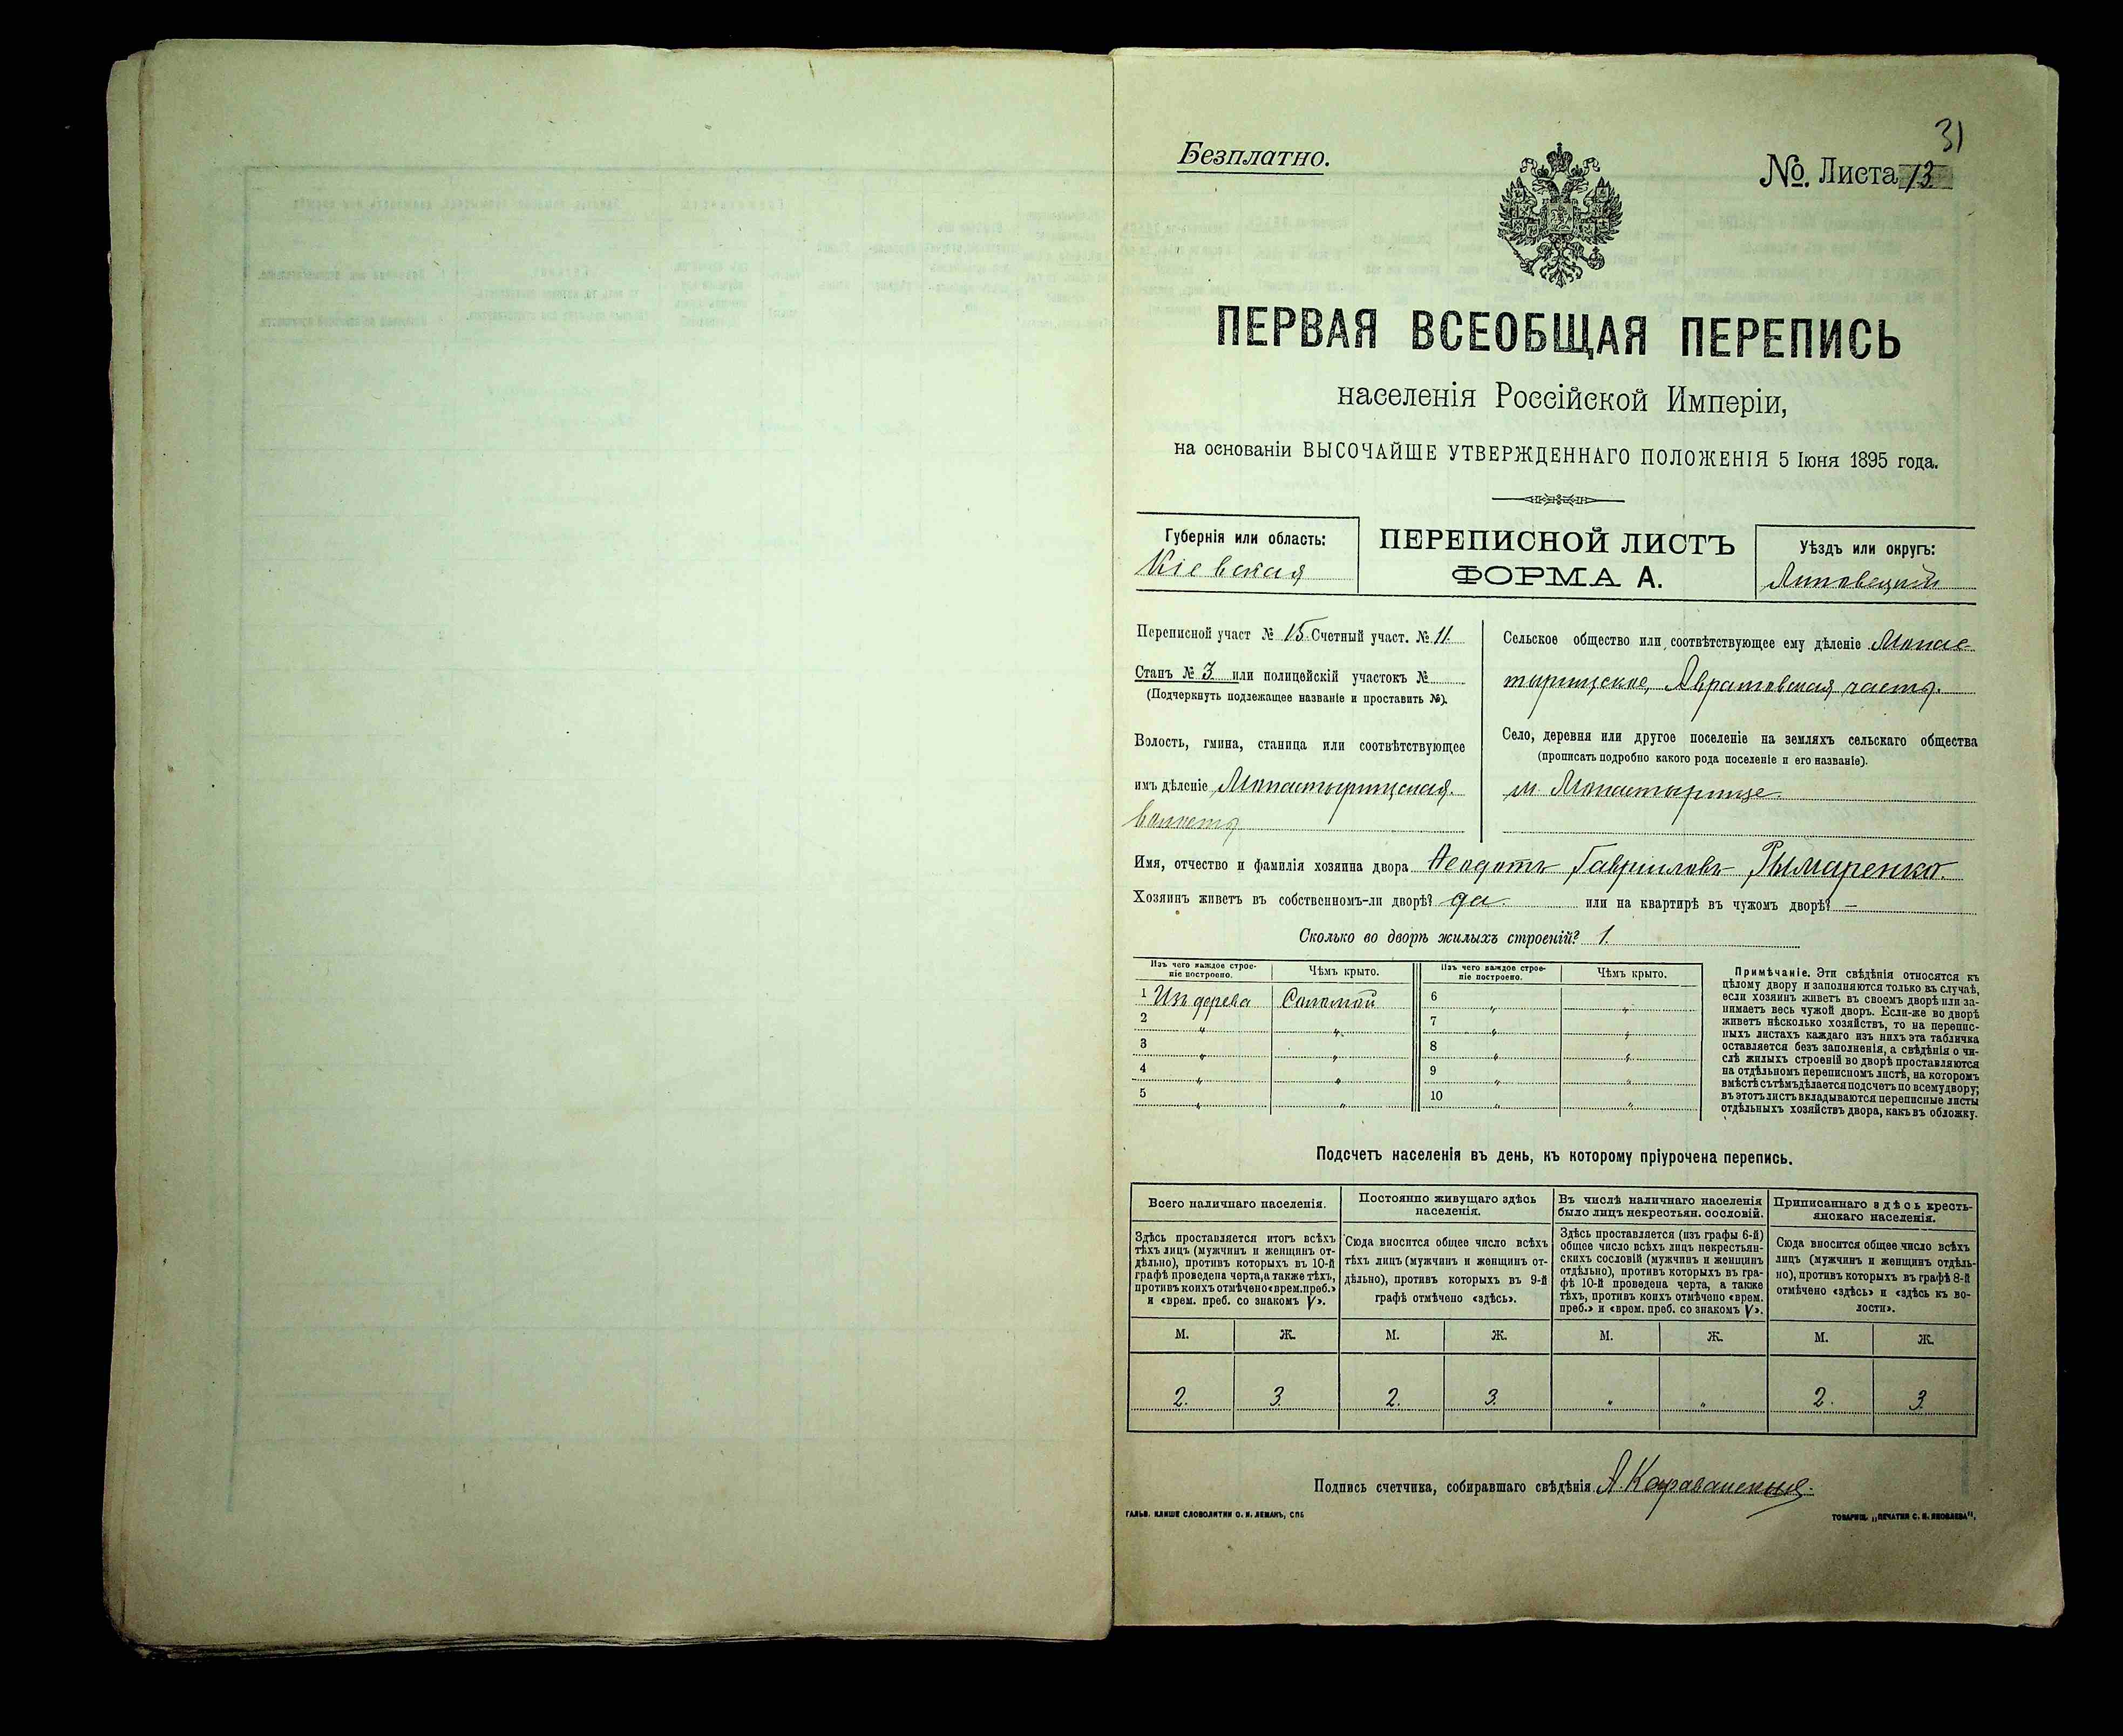 31
Безплатно.
№. Листа 13
ПЕРВАЯ ВСЕОБЩАЯ ПЕРЕПИСЬ
населенія Россійской Имперіи,
на основаніи ВЫСОЧАЙШЕ УТВЕРЖДЕННАГО ПОЛОЖЕНІЯ 5 Іюня 1895 года.
Губернія или область:
Кіевская
ПЕРЕПИСНОЙ ЛИСТЪ
ФОРМА А.
Уѣздъ или округъ:
Липовецкій
Переписной участ № 15 Счетный участ. № 11.
Станъ № 3 или полицейскій участокъ №
(Подчеркнуть подлежащее названіе и проставить №).
Волость, гмина, станица или соотвѣтствующее
имъ дѣленіе Монастырищская.
волость
Сельское общество или соотвѣтствующее ему дѣленіе Монас-
тырищское, Авратовская часть.
Село, деревня или другое поселеніе на земляхъ сельскаго общества
(прописать подробно какого рода поселеніе и его названіе).
м Монастырище.
Имя, отчество и фамилія хозяина двора Ѳеодотъ Гавриловъ Рымаренко.
Хозяинъ живетъ въ собственномъ-ли дворѣ? да. или на квартирѣ въ чужомъ дворѣ? —
Сколько во дворѣ жилыхъ строеній? 1.
Изъ чего каждое строе-
ніе построено.
Чѣмъ крыто.
Изъ чего каждое строе-
ніе построено.
Чѣмъ крыто.
1 Изъ дерева Соломой 6 „ „
2 „ „ 7 „ „
3 „ „ 8 „ „
4 „ „ 9 „ „
5 „ „ 10 „ „
Примѣчаніе. Эти свѣдѣнія относятся къ
цѣлому двору и заполняются только въ случаѣ,
если хозяинъ живетъ въ своемъ дворѣ или за-
нимаетъ весь чужой дворъ. Если-же во дворѣ
живетъ нѣсколько хозяйствъ, то на перепис-
ныхъ листахъ каждаго изъ нихъ эта табличка
оставляется безъ заполненія, а свѣдѣнія о чи-
слѣ жилыхъ строеній во дворѣ проставляются
на отдѣльномъ переписномъ листѣ, на которомъ
вмѣстѣ съ тѣмъ дѣлается подсчетъ по всему двору;
въ этотъ листъ вкладываются переписные листы
отдѣльныхъ хозяйствъ двора, какъ въ обложку.
Подсчетъ населенія въ день, къ которому пріурочена перепись.
Всего наличнаго населенія.
Здѣсь проставляется итогъ всѣхъ
тѣхъ лицъ (мужчинъ и женщинъ от-
дѣльно), противъ которыхъ въ 10-й
графѣ проведена черта, а также тѣхъ,
противъ коихъ отмѣчено «врем. преб.»
и «врем. преб. со знакомъ V».
Постоянно живущаго здѣсь
населенія.
Сюда вносится общее число всѣхъ
тѣхъ лицъ (мужчинъ и женщинъ от-
дѣльно), противъ которыхъ въ 9-й
графѣ отмѣчено «здѣсь».
Въ числѣ наличнаго населенія
было лицъ некрестьян. сословій.
Здѣсь проставляется (изъ графы 6-й)
общее число всѣхъ лицъ некрестьян-
скихъ сословій (мужчинъ и женщинъ
отдѣльно), противъ которыхъ въ гра-
фѣ 10-й проведена черта, а также
тѣхъ, противъ коихъ отмѣчено «врем.
преб.» и «врем. преб. со знакомъ V».
Приписаннаго здѣсь кресть-
янскаго населенія.
Сюда вносится общее число всѣхъ
лицъ (мужчинъ и женщинъ отдѣль-
но), противъ которыхъ въ графѣ 8-й
отмѣчено «здѣсь» и «здѣсь къ во-
лости».
М. Ж. М. Ж. М. Ж. М. Ж.
2. 3. 2. 3. „ „ 2. 3.
Подпись счетчика, собиравшаго свѣдѣнія
ГАЛЬВ. КЛИШЕ СЛОВОЛИТНИ О. И. ЛЕМАНЪ, СПБ
ТОВАРИЩ. „ПЕЧАТНЯ С. П. ЯКОВЛЕВА".